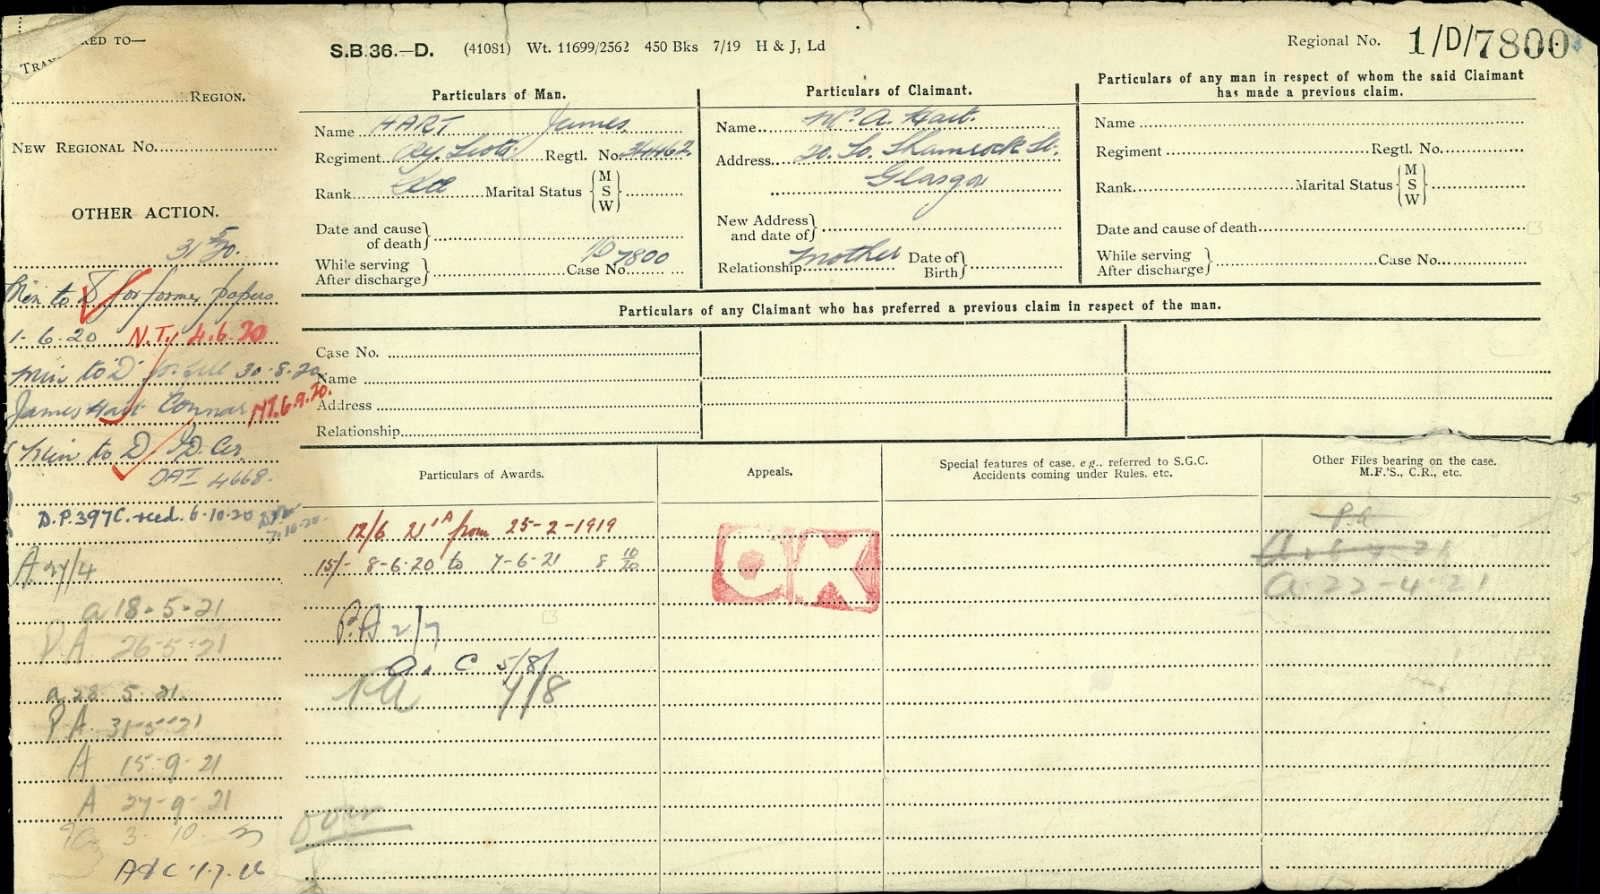 RED TO—
REGION.
NEW REGIONAL No.
OTHER ACTION.
31 5/20.
Min to D for former papers
1-6-20 N.T. 4.6.20
Min to D for 30-8-20
James Hart Connar N.T. 6.9.20.
Min to D
DAI 4668.
D.P. 397C. recd. 6-10-20
7-10-20
A 27/4
a 18-5-21
P.A. 26-5-21
a 28 5 21.
P.A. 31-5-21
A 15-9-21
A 27-9-21
3- 10-
A&C 1.7.
S.B.36.—D. (41081) Wt. 11699/2562 450 Bks 7/19 H & J, Ld
Regional No. 1/D/7800
Particulars of Man.
Name HART James
Regiment Ry. Scots Regtl. No. 34462
Rank Pte Marital Status { M S W }
Date and cause of death }
While serving After discharge } Case No. 1/D 7800
Particulars of Claimant.
Name A. Hart.
Address 20. So. Shamrock St.
Glasgow
New Address and date of }
Relationship Mother Date of Birth }
Particulars of any man in respect of whom the said Claimant
has made a previous claim.
Name
Regiment Regtl. No.
Rank Marital Status { M S W }
Date and cause of death
While serving After discharge } Case No.
Particulars of any Claimant who has preferred a previous claim in respect of the man.
Case No.
Name
Address
Relationship
Particulars of Awards.
12/6 21 1A from 25-2-1919
15/- 8-6-20 to 7-6-21 8 10/20
P.A 2/7
a. C 5/8
P.A 9/8
over
Appeals.
Special features of case, e.g., referred to S.G.C.
Accidents coming under Rules, etc.
Other Files bearing on the case.
M.F.'S., C.R., etc.
P.A
a 22-4-21